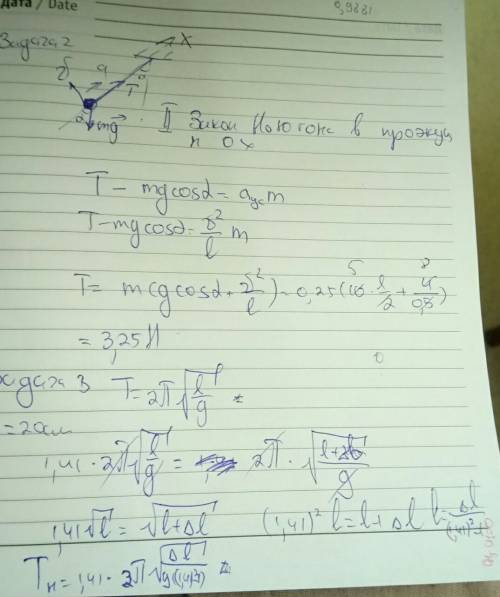 Дата / Date
Задача 2
X
a
T
mg
II Закон Ньютона в проэкции
н ох
T - mgcosα = aцс m
T - mgcosα = υ²/l m
T = m(gcosα + υ²/l) = 0,25(10 · 1/2 + 4/0,5)
5
8
= 3,25 Н
Задача 3 T = 2π√(l/g)
= 20см
1,41 · 2π√(l/g) = 2π · √((l+Δl)/g)
1,41√l = √(l+Δl) (1,41)² l = l + Δl l = Δl/((1,41)²-1)
Tн = 1,41 · 2π√(Δl/(g((1,41)²-1)))